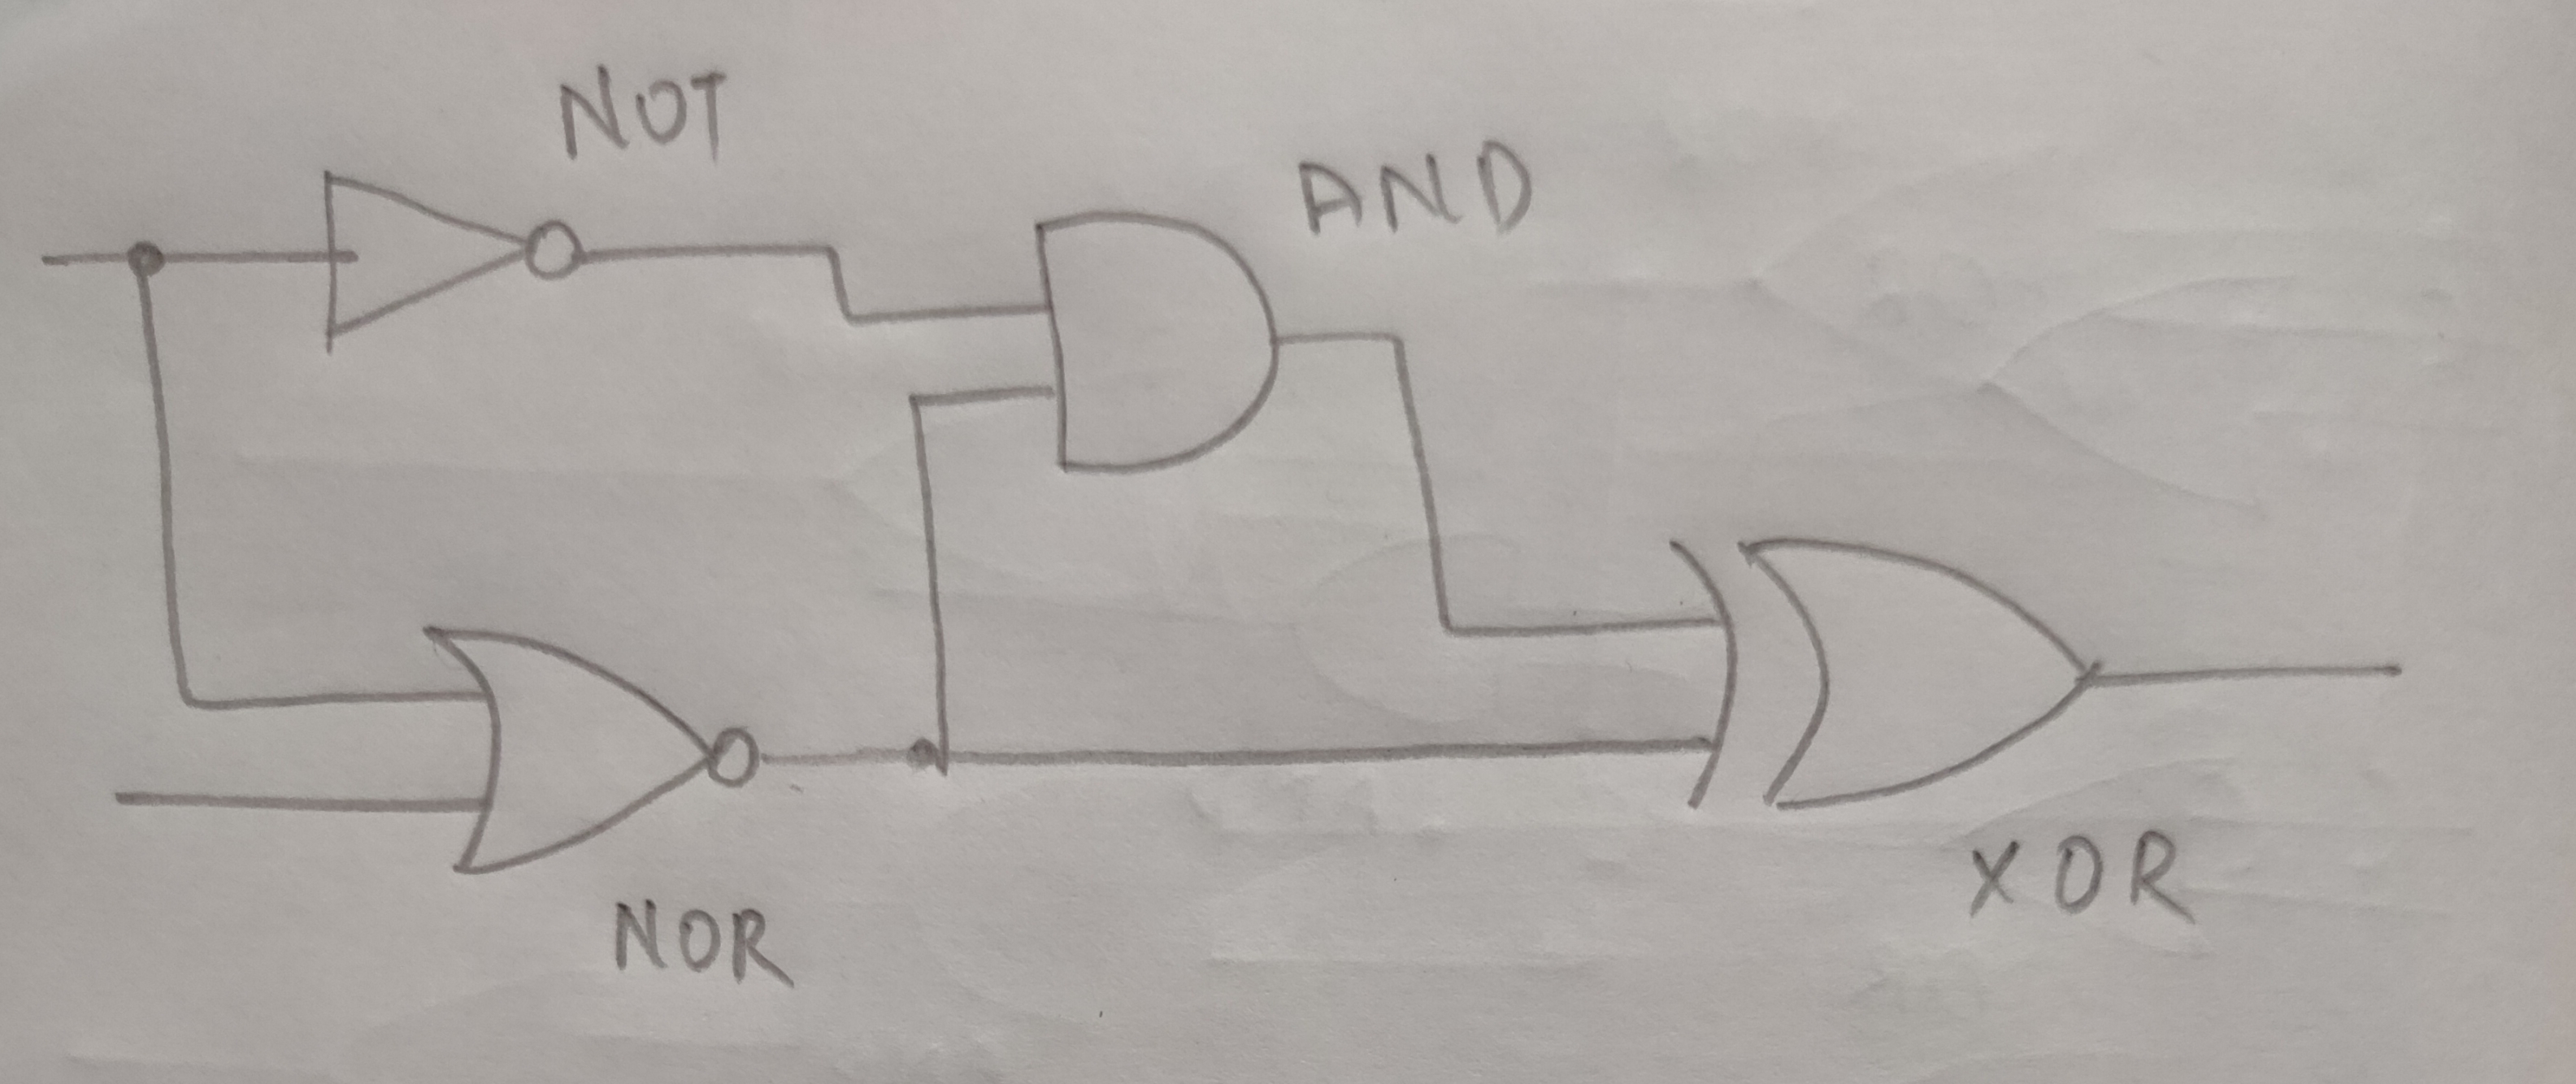 NOT
AND
XOR
NOR